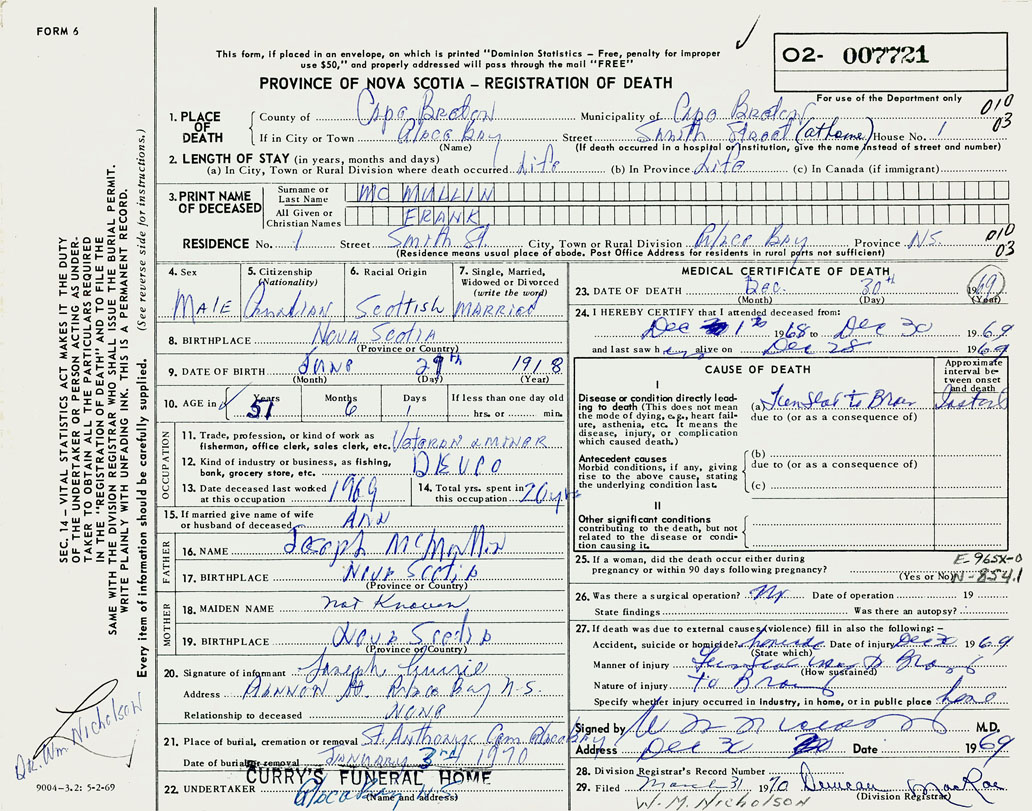 FORM 6
This form, if placed in an envelope, on which is printed "Dominion Statistics – Free, penalty for improper
use $50," and properly addressed will pass through the mail "FREE"
PROVINCE OF NOVA SCOTIA – REGISTRATION OF DEATH
02- 007721
For use of the Department only
010
03
1. PLACE OF DEATH
County of Cape Breton Municipality of Cape Breton
If in City or Town Glace Bay Street Smith Street (at home) House No. 1
(Name) (If death occurred in a hospital or institution, give the name instead of street and number)
2. LENGTH OF STAY (in years, months and days)
(a) In City, Town or Rural Division where death occurred Life (b) In Province Life (c) In Canada (if immigrant)
3. PRINT NAME OF DECEASED
Surname or Last Name MC MULLIN
All Given or Christian Names FRANK
RESIDENCE No. 1 Street Smith St. City, Town or Rural Division Glace Bay Province N.S.
010
03
(Residence means usual place of abode. Post Office Address for residents in rural parts not sufficient)
4. Sex
Male
5. Citizenship (Nationality)
Canadian
6. Racial Origin
Scottish
7. Single, Married, Widowed or Divorced (write the word)
Married
8. BIRTHPLACE Nova Scotia
(Province or Country)
9. DATE OF BIRTH June 29th 1918
(Month) (Day) (Year)
10. AGE in Years 51 Months 6 Days 1 If less than one day old
hrs. or min.
OCCUPATION
11. Trade, profession, or kind of work as fisherman, office clerk, sales clerk, etc. Veteran & Miner
12. Kind of industry or business, as fishing, bank, grocery store, etc. DEVCO
13. Date deceased last worked at this occupation 1969
14. Total yrs. spent in this occupation 20 yrs
15. If married give name of wife or husband of deceased Ann
FATHER
16. NAME Joseph McMullin
17. BIRTHPLACE Nova Scotia
(Province or Country)
MOTHER
18. MAIDEN NAME Not Known
19. BIRTHPLACE Nova Scotia
(Province or Country)
20. Signature of informant Joseph
Address St. Glace Bay N.S.
Relationship to deceased None
21. Place of burial, cremation or removal St. Anthonys Cem Glace Bay
Date of burial or removal January 3rd 1970
CURRY'S FUNERAL HOME
22. UNDERTAKER Glace Bay N.S.
(Name and address)
MEDICAL CERTIFICATE OF DEATH
23. DATE OF DEATH Dec. 30th 1969
(Month) (Day) (Year)
24. I HEREBY CERTIFY that I attended deceased from:
Dec 1968 to Dec 30 1969
and last saw h alive on Dec 28 1969
CAUSE OF DEATH
Approximate interval between onset and death
I
Disease or condition directly leading to death (This does not mean the mode of dying, e.g., heart failure, asthenia, etc. It means the disease, injury, or complication which caused death.)
(a) to Brain
due to (or as a consequence of)
Antecedent causes
Morbid conditions, if any, giving rise to the above cause, stating the underlying condition last.
(b)
due to (or as a consequence of)
(c)
II
Other significant conditions contributing to the death, but not related to the disease or condition causing it.
25. If a woman, did the death occur either during pregnancy or within 90 days following pregnancy?
(Yes or No)
E-965X-0
N-854.1
26. Was there a surgical operation? No Date of operation 19
State findings Was there an autopsy?
27. If death was due to external causes (violence) fill in also the following:–
Accident, suicide or homicide? homicide Date of injury Dec 30 1969
(State which)
Manner of injury
(How sustained)
Nature of injury To Brain
Specify whether injury occurred in industry, in home, or in public place home
Signed by M.D.
Address Dec 30 Date 1969
28. Division Registrar's Record Number
29. Filed March 31 1970 Duncan MacRae
(Division Registrar)
W. M. Nicholson
SEC. 14 – VITAL STATISTICS ACT MAKES IT THE DUTY
OF THE UNDERTAKER OR PERSON ACTING AS UNDER-
TAKER TO OBTAIN ALL THE PARTICULARS REQUIRED
IN THE "REGISTRATION OF DEATH" AND TO FILE THE
SAME WITH THE DIVISION REGISTRAR WHO SHALL ISSUE THE BURIAL PERMIT.
WRITE PLAINLY WITH UNFADING INK. THIS IS A PERMANENT RECORD.
Every item of information should be carefully supplied. (See reverse side for instructions.)
Dr. Wm Nicholson
9004-3.2: 5-2-69